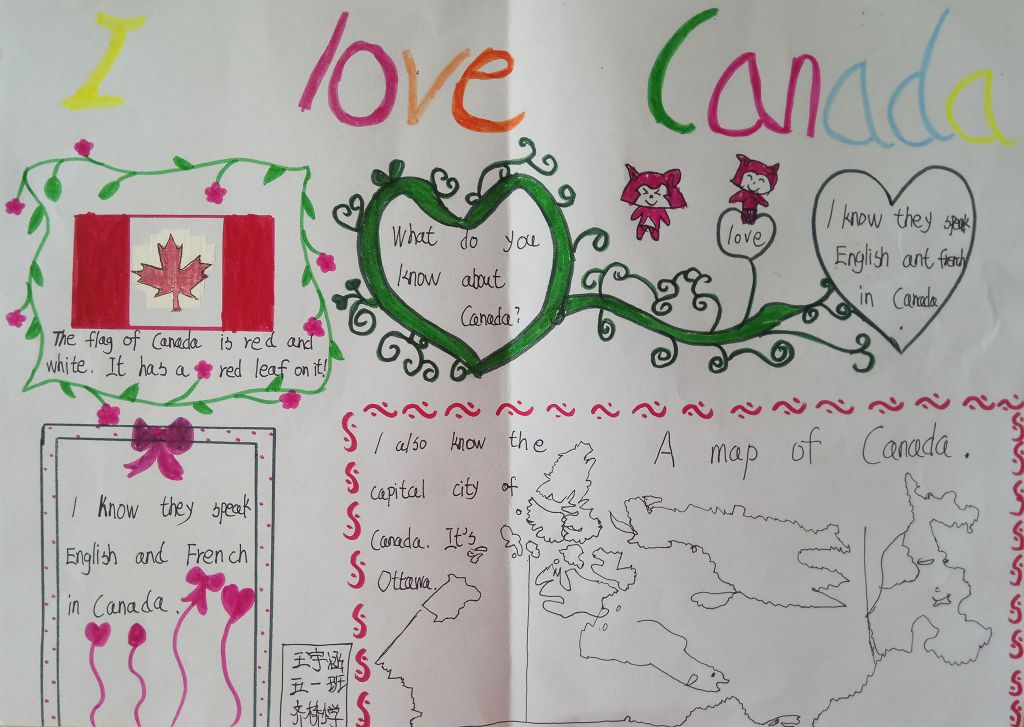 I love Canada
What do you
know about
Canada?
love
I know they speak
English ant french
in Canada.
The flag of Canada is red and
white. It has a red leaf on it!
I know they speak
English and French
in Canada.
I also know the
capital city of
Canada. It's
Ottawa.
A map of Canada.
王宇涵
五一班